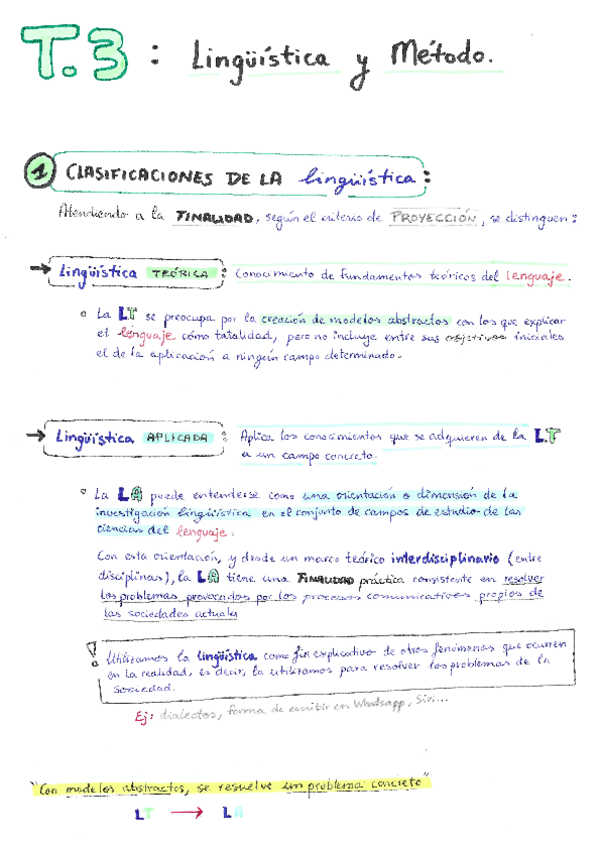 T.3 : Lingüística y Método.
1 CLASIFICACIONES DE LA lingüística:
Atendiendo a la FINALIDAD, según el criterio de PROYECCIÓN, se distinguen:
→ Lingüística TEÓRICA : Conocimiento de fundamentos teóricos del lenguaje.
° La LT se preocupa por la creación de modelos abstractos con los que explicar
el lenguaje como totalidad, pero no incluye entre sus objetivos iniciales
el de la aplicación a ningún campo determinado.
→ Lingüística APLICADA : Aplica los conocimientos que se adquieren de la LT
a un campo concreto.
° La LA puede entenderse como una orientación o dimensión de la
investigación lingüística en el conjunto de campos de estudio de las
ciencias del lenguaje.
Con esta orientación, y desde un marco teórico interdisciplinario (entre
disciplinas), la LA tiene una FINALIDAD práctica consistente en resolver
los problemas provocados por los procesos comunicativos propios de
las sociedades actuales
! Utilizamos la lingüística como fin explicativo de otros fenómenos que ocurren
en la realidad, es decir, la utilizamos para resolver los problemas de la
sociedad.
Ej: dialectos, forma de escribir en Whatsapp, Siri...
"Con modelos abstractos, se resuelve un problema concreto"
LT → LA